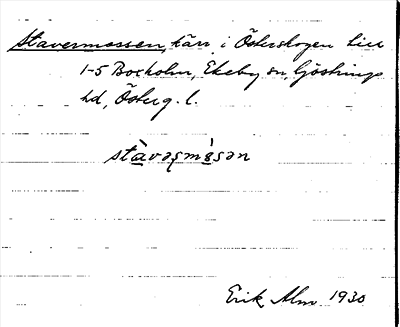 Stavermossen, kärr i Österskogen till
1-5 Boxholm, Ekeby sn, Göstrings
hd, Österg. l.
stàvəs̨mɵ̀sən
Erik Alm 1930